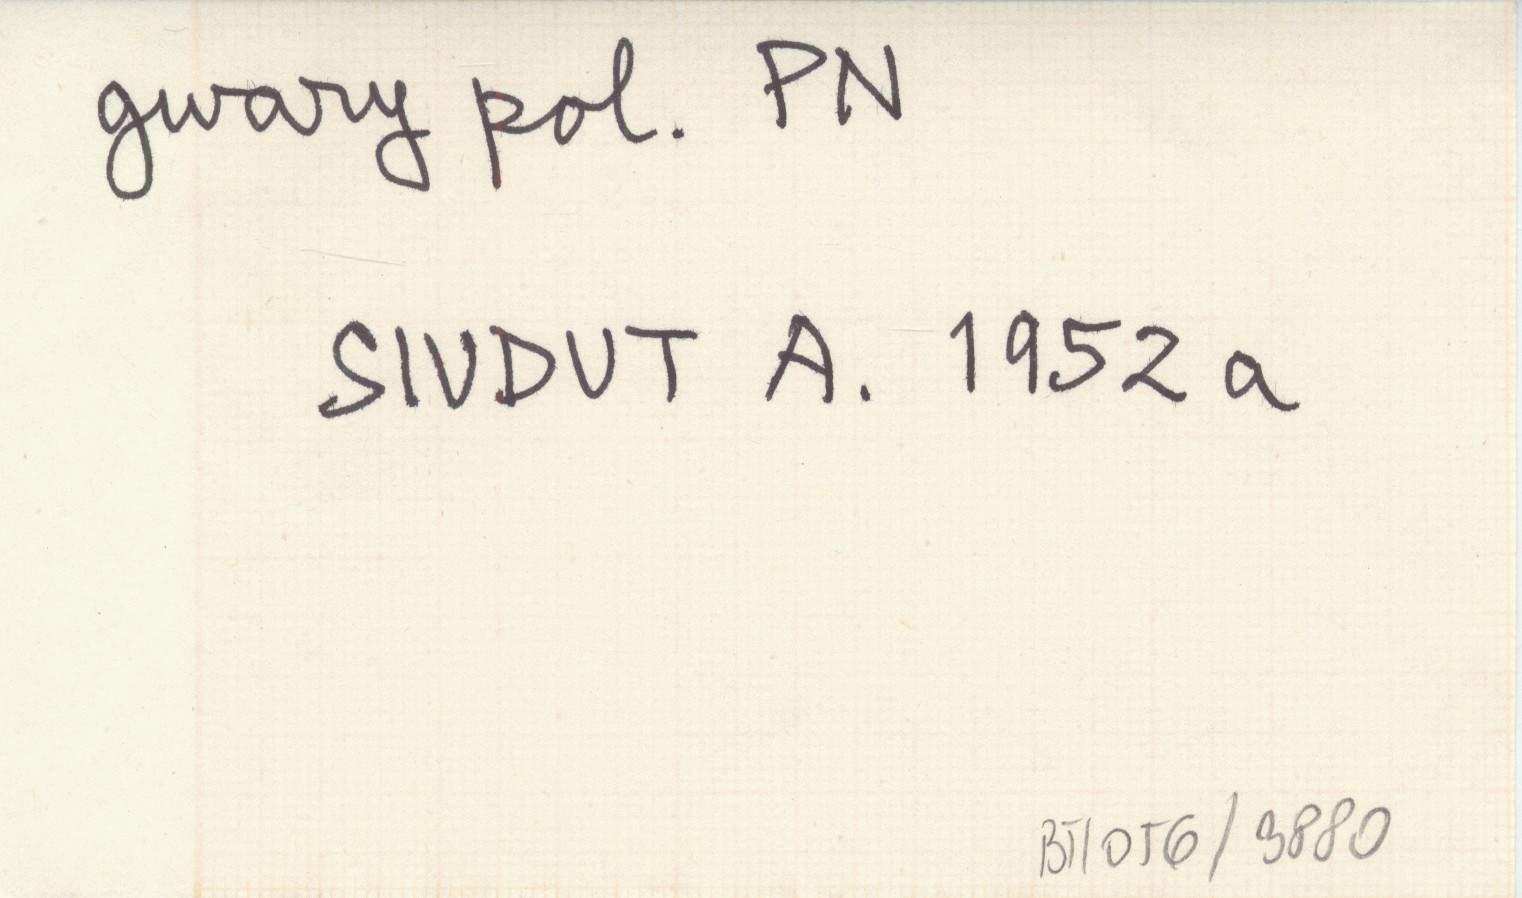 gwary pol. PN
SIUDUT A. 1952 a
BTI 056/3880